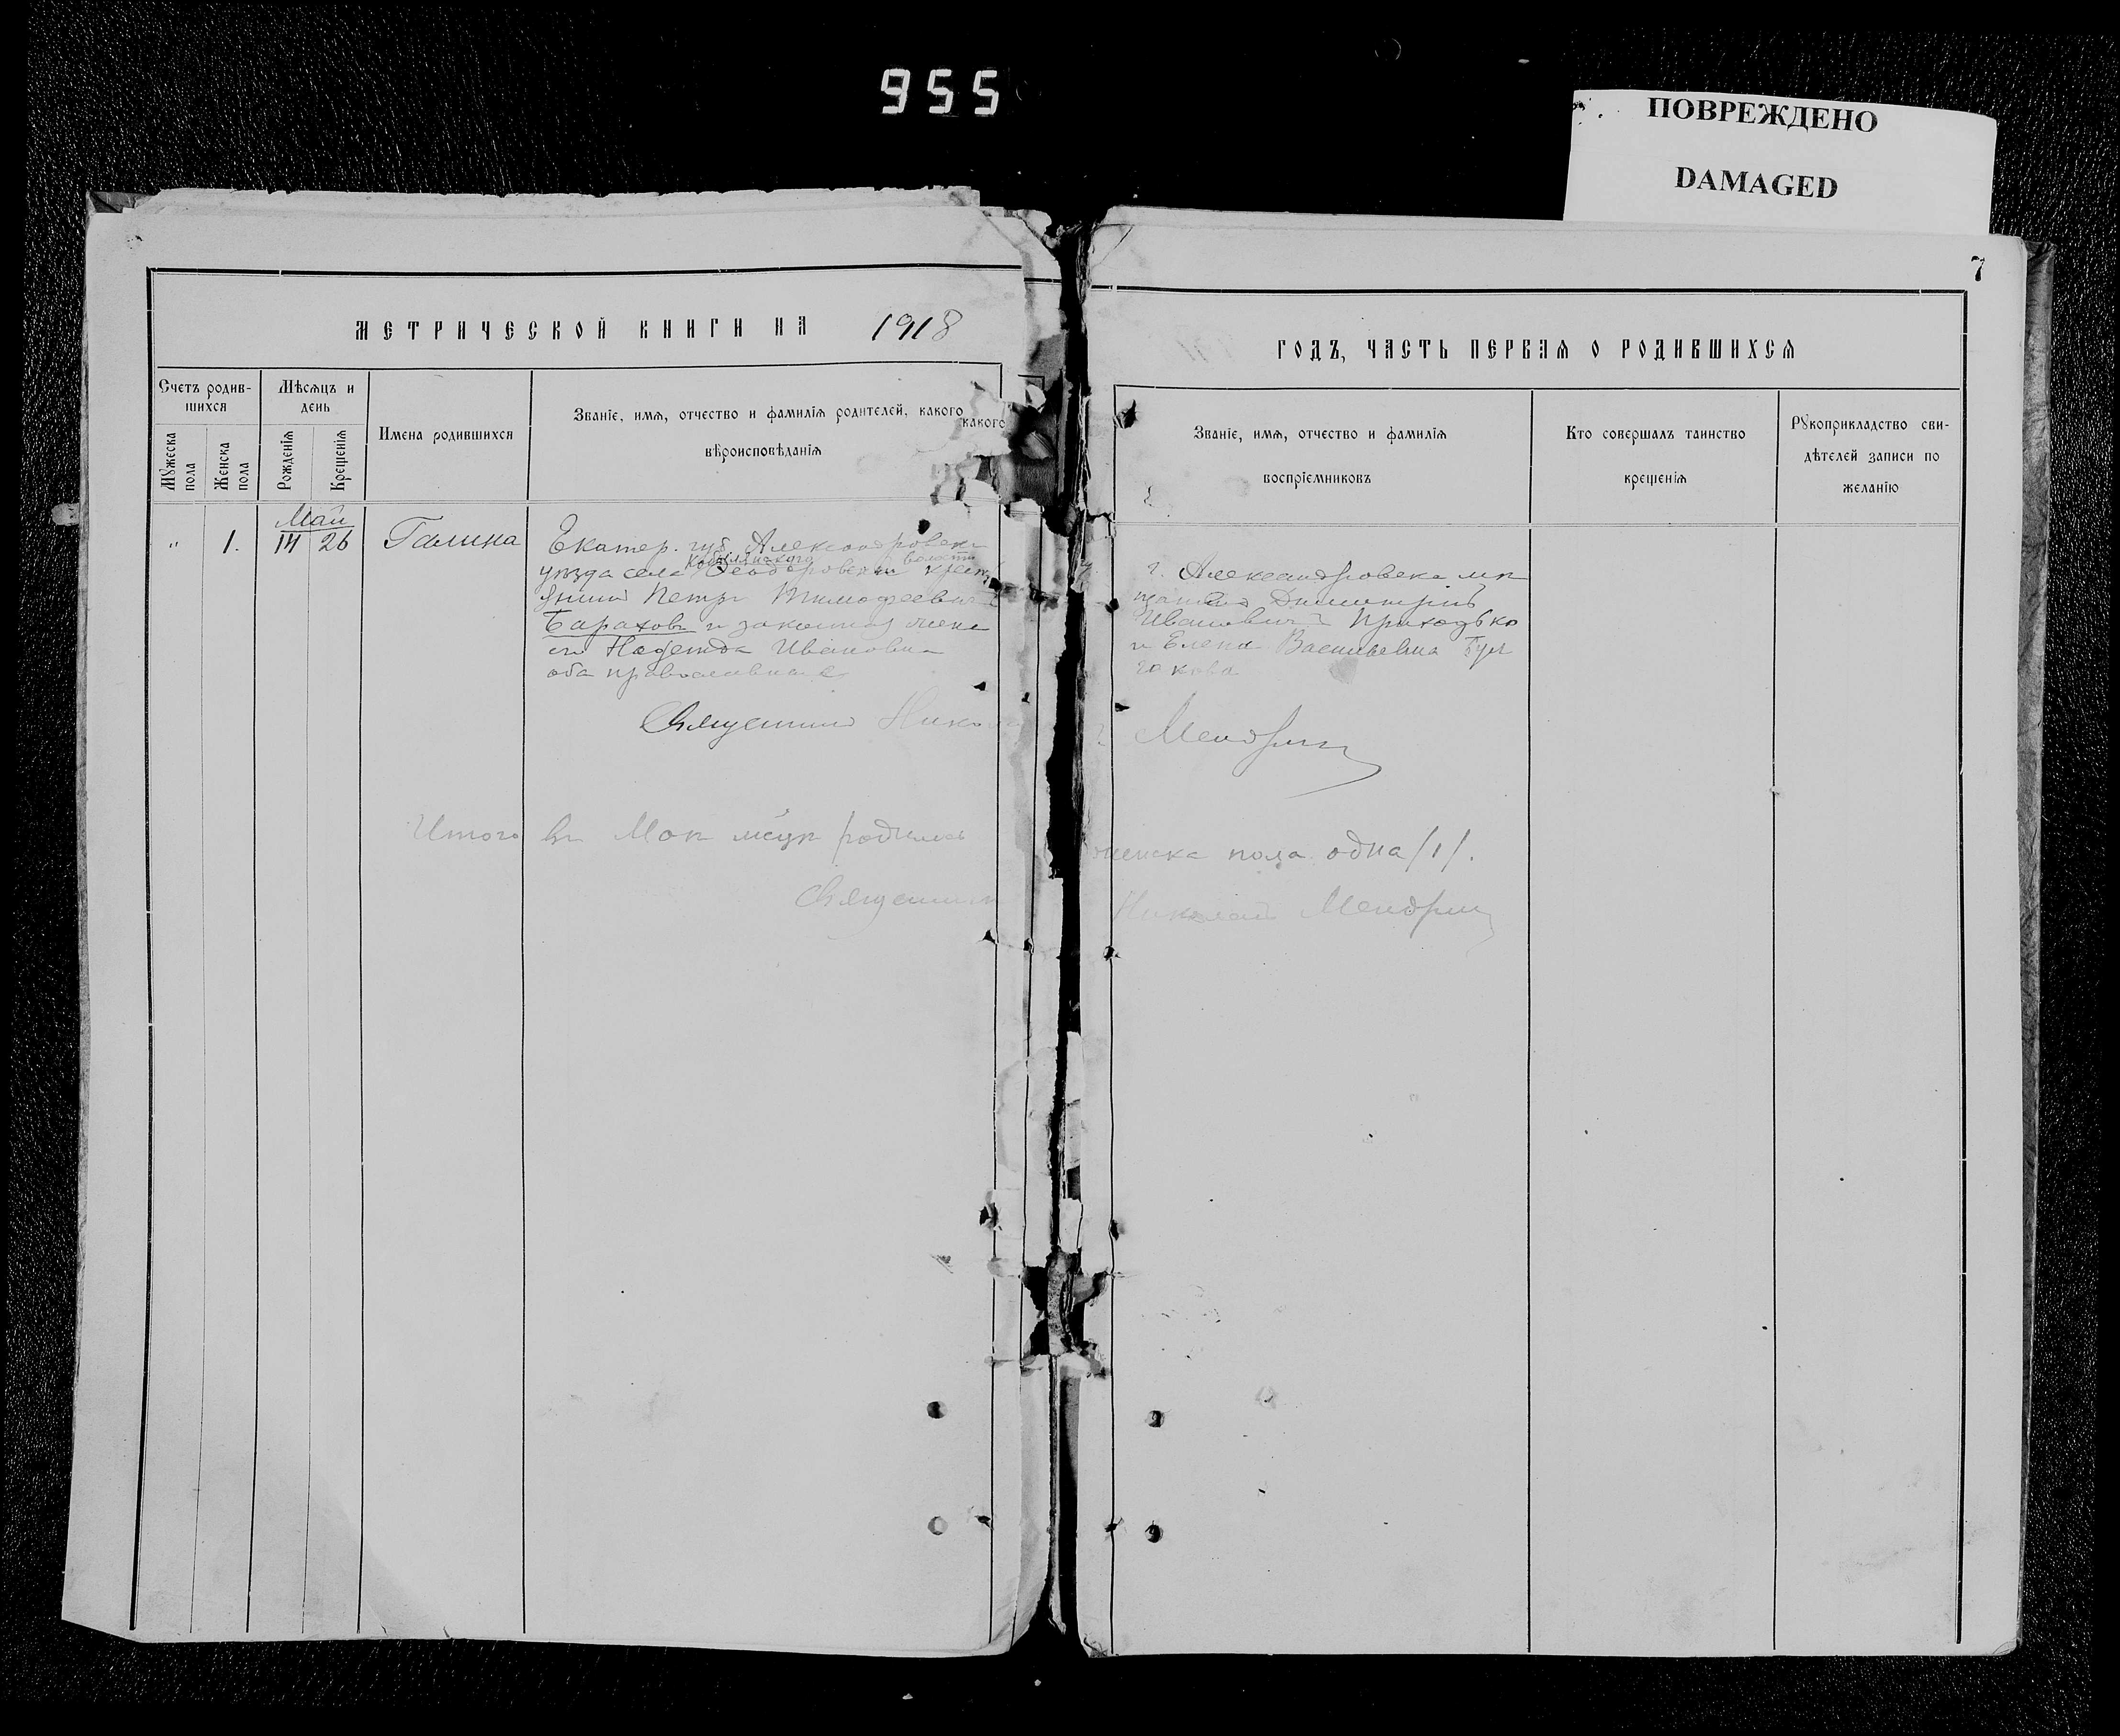 955
ПОВРЕЖДЕНО
DAMAGED
7
МЕТРИЧЕСКОЙ КНИГИ НА 1918
ГОДЪ, ЧАСТЬ ПЕРВАЯ О РОДИВШИХСЯ
Счетъ родив-
шихся
Мужеска пола
Женска пола
Мѣсяцъ и
день
Рожденія
Крещенія
Имена родившихся
Званіе, имя, отчество и фамилія родителей, какого
какого
вѣроисповѣданія
Званіе, имя, отчество и фамилія
воспріемниковъ
Кто совершалъ таинство
крещенія
Рукоприкладство сви-
дѣтелей записи по
желанію
Май
" 1. 14 26 Галина
Екатер. губ. Александровск
волости
уѣзда села Ѳеодоровки крест
Петръ Тимофеевич
Бараховъ и законная жена
его Надежда Ивановна
оба православные
Священник Никол
г. Александровска мѣ
щанинъ Димитрій
Ивановичъ Приходько
и Елена Васильевна Бул
гакова
Мендрин
Итого въ Маѣ мѣсяц родилось
женска пола одна /1/.
Священник
Николай Мендрин